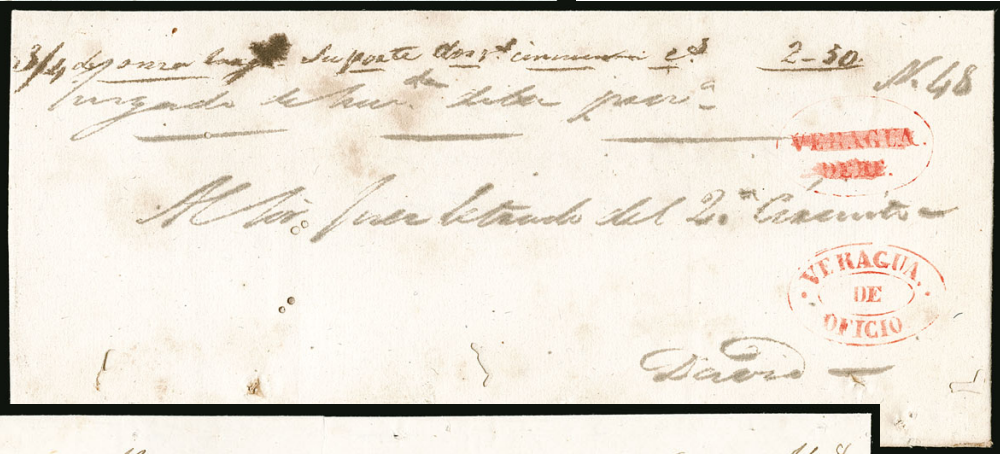 3/4 de onza Su porte dos ps. cincuenta cs. 2-50.
N. 48
Juzgado de la prov.a
VERAGUA.
DEBE.
Al Sôr. Juez letrado del 2.o Circuito
VERAGUA,
DE
OFICIO
David